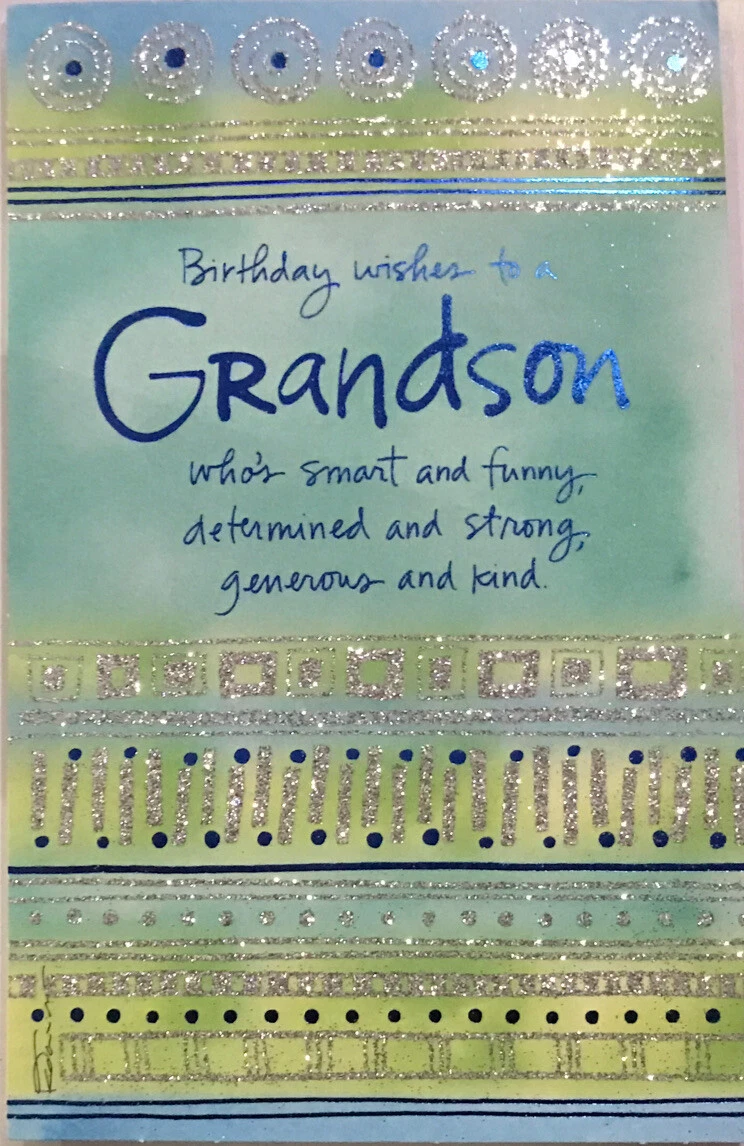 Birthday wishes to a
Grandson
who's smart and funny,
determined and strong,
generous and kind.